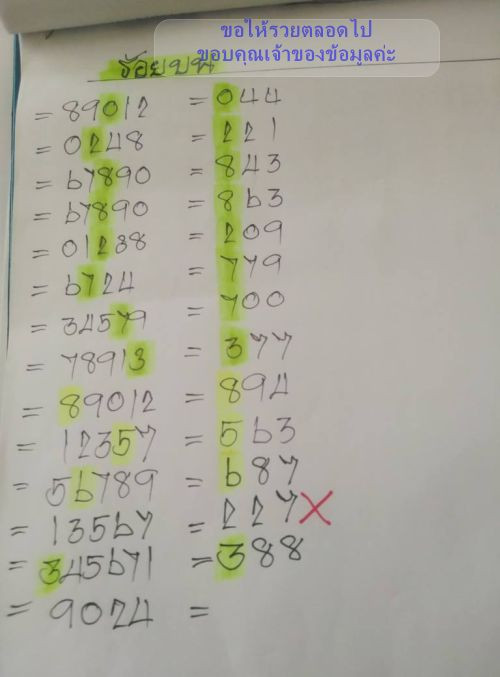 ขอให้รวยตลอดไป
ขอบคุณเจ้าของข้อมูลค่ะ
ร้อยบน
= 89012 = 044
= 0248 = 221
= 67890 = 843
= 67890 = 863
= 01238 = 209
= 6724 = 779
= 34579 = 700
= 78913 = 377
= 89012 = 894
= 12357 = 563
= 56789 = 687
= 13567 = 227 X
= 345671 = 388
= 9024 =